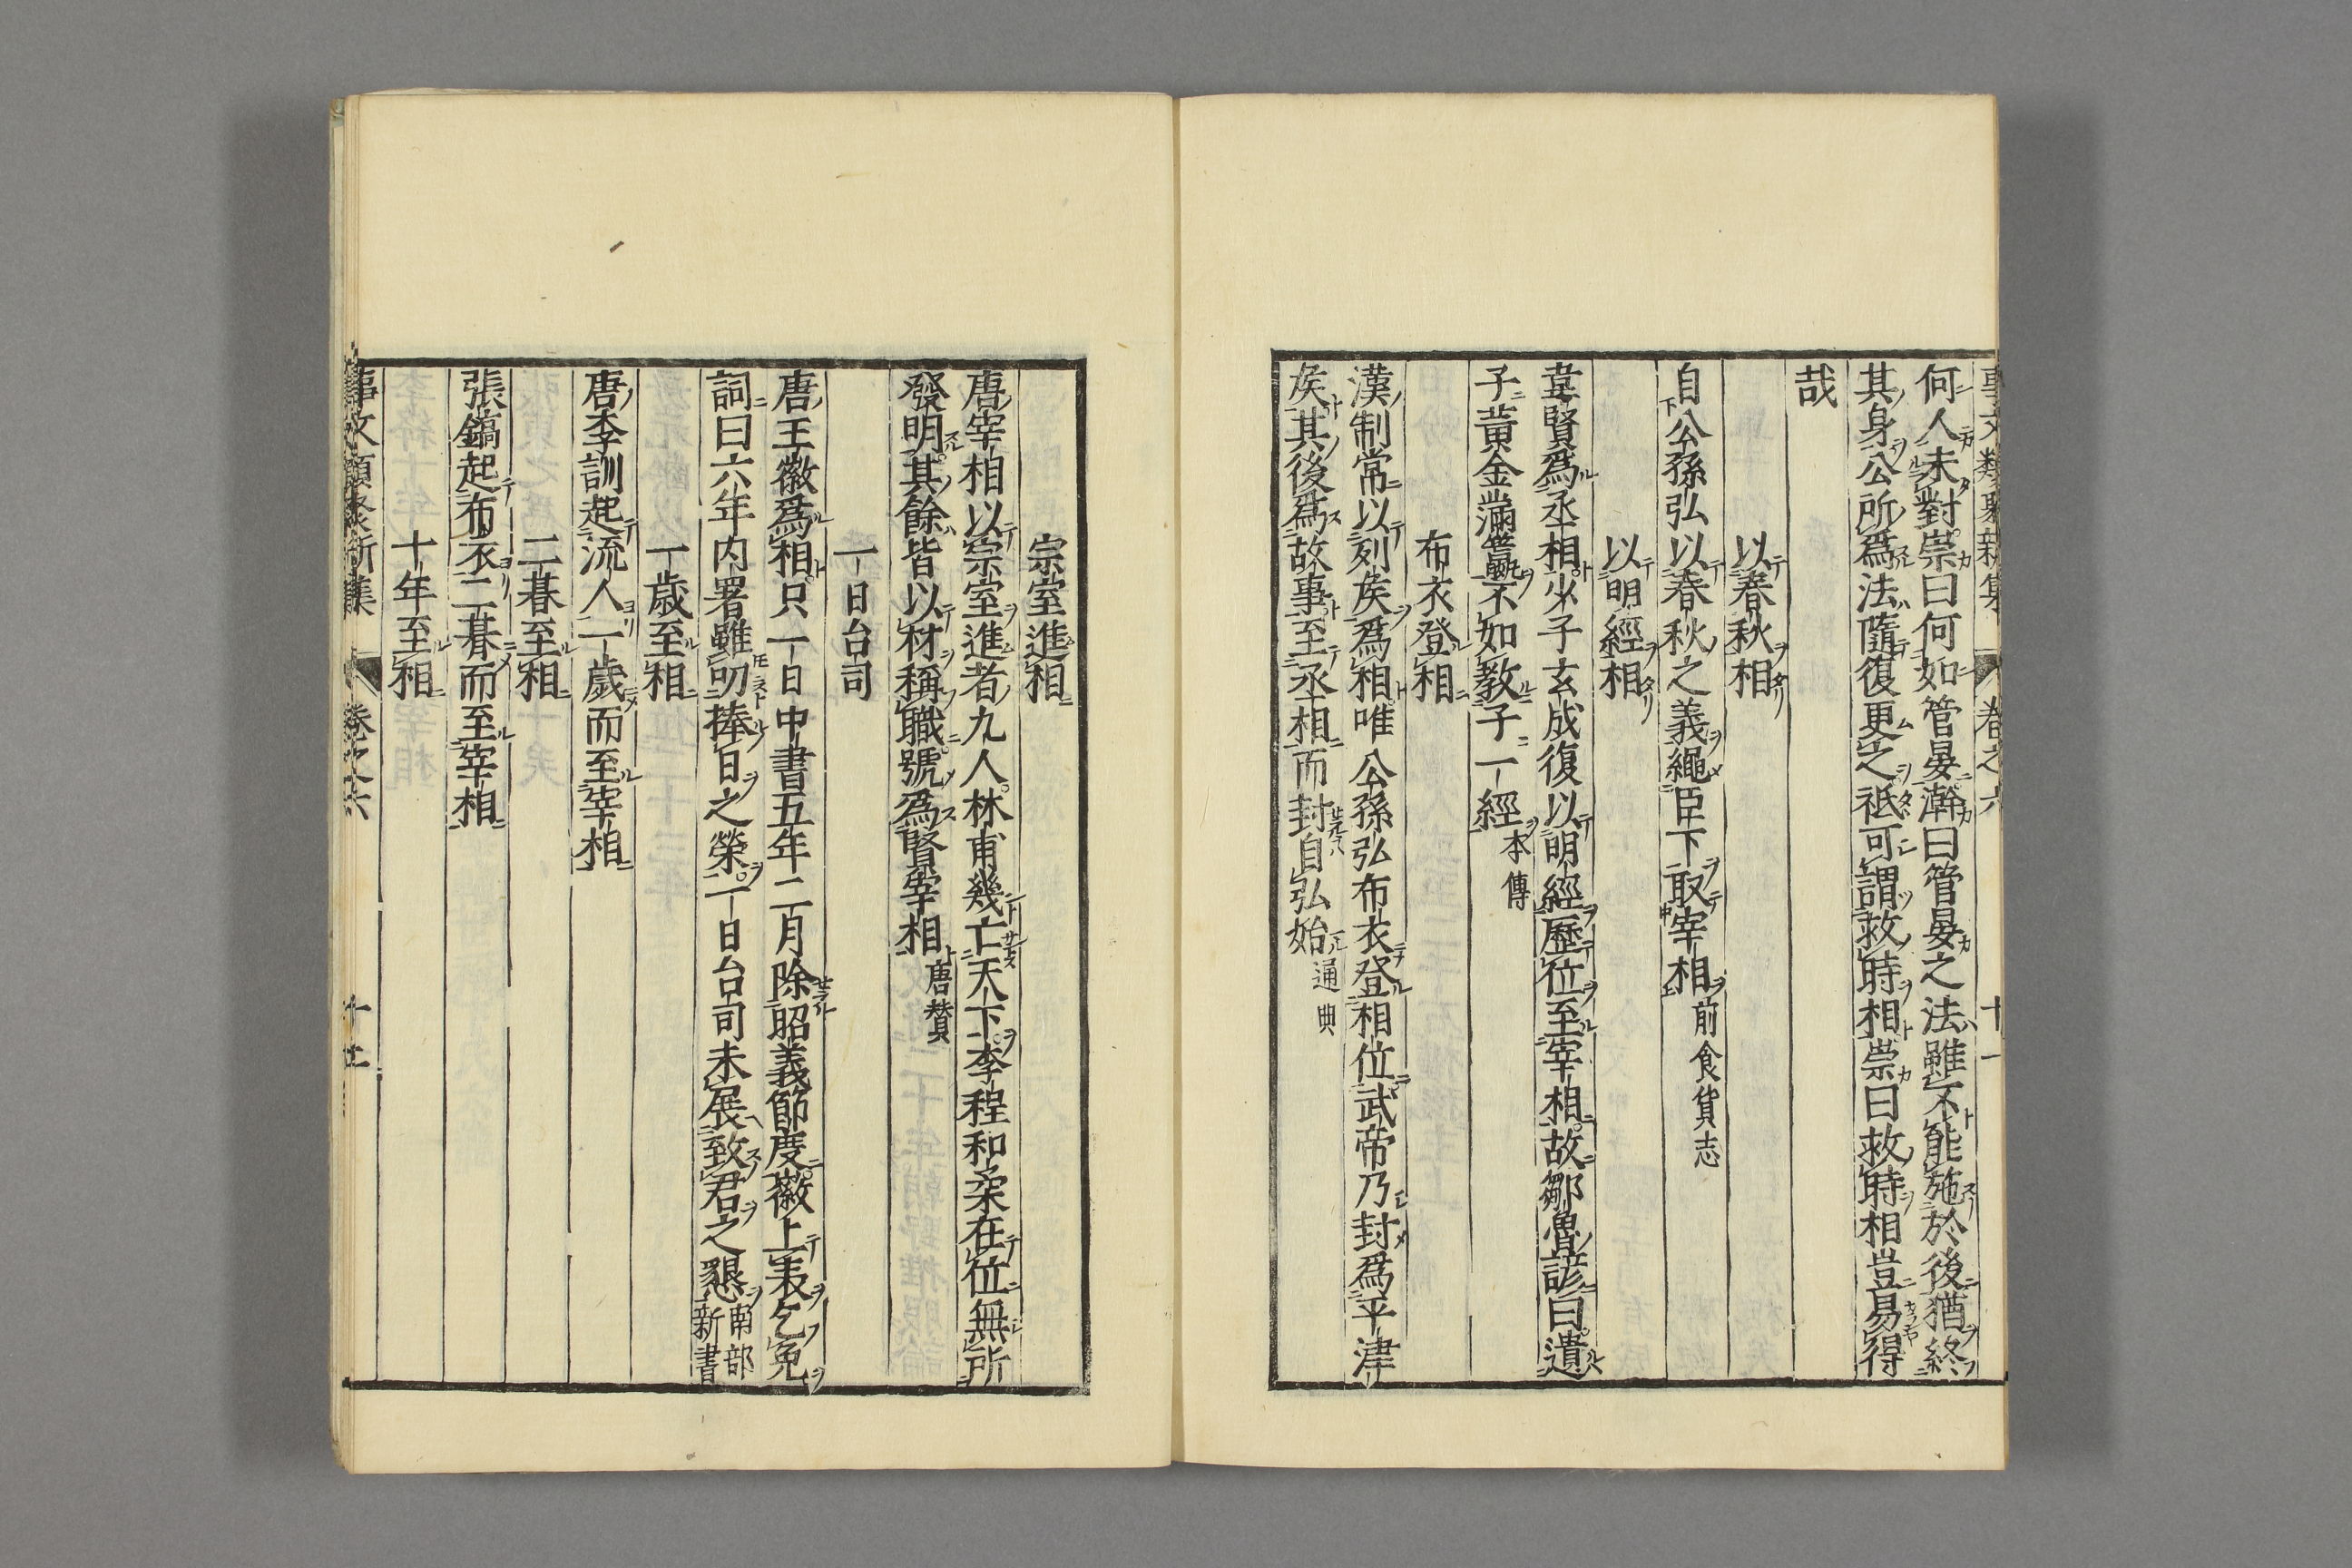 事文類聚新集 卷之六 十一
何人未對崇曰何如管晏澣曰管晏之法雖不能施於後猶終
其身公所爲法隨復更之祗可謂救時相崇曰救時相豈易得
哉
以春秋相
自公孫弘以春秋之義繩臣下取宰相前食貨志
以明經相
韋賢爲丞相少子玄成復以明經歷位至宰相故鄒魯諺曰遺
子黃金滿籯不如教子一經本傳
布衣登相
漢制常以列矦爲相唯公孫弘布衣登相位武帝乃封爲平津
矦其後爲故事至丞相而封自弘始通典
宗室進相
唐宰相以宗室進者九人林甫幾亡天下李程和柔在位無所
發明其餘皆以材稱職號爲賢宰相唐贊
一日台司
唐王徽爲相只一日中書五年二月除昭義節度徽上表乞免
詞曰六年内署雖叨捧日之榮一日台司未展致君之懇南部新書
一歲至相
唐李訓起流人一歲而至宰相
二朞至相
張鎬起布衣二朞而至宰相
十年至相
事文類聚新集 卷之六